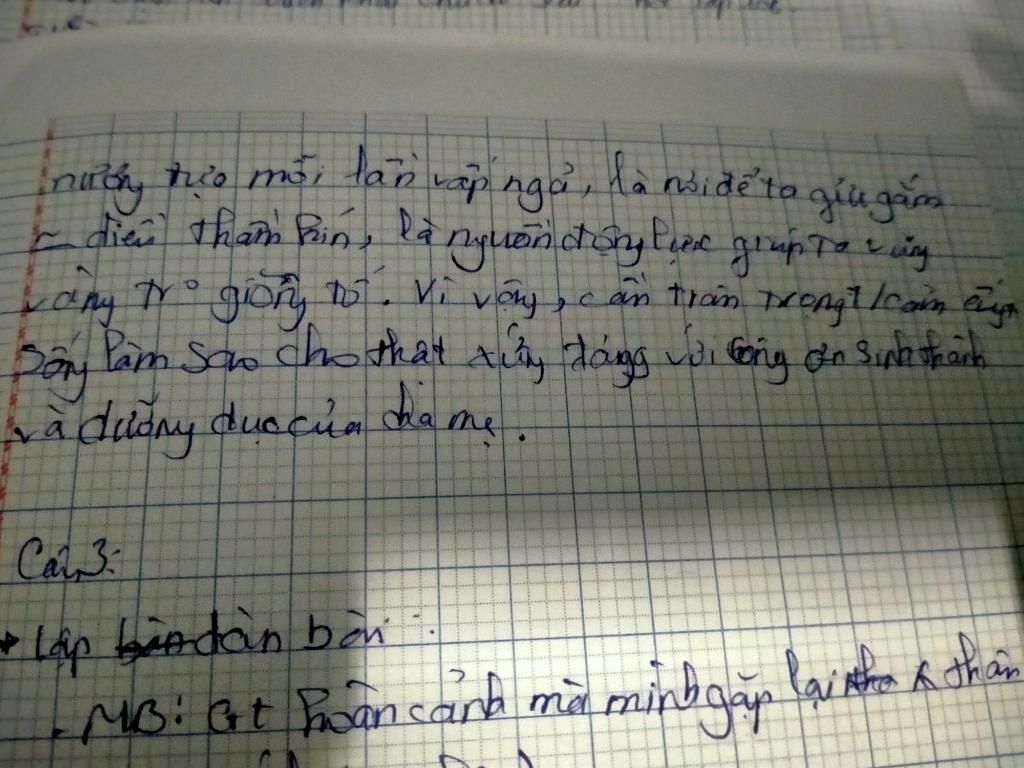 nương tựa mỗi lần vấp ngã, là nơi để ta gửi gắm
~ điều thầm kín, là nguồn động lực giúp ta vững
vàng trc giông tố. Vì vậy, cần trân trọng t/cảm
sống làm sao cho thật xứng đáng với công ơn sinh thành
và dưỡng dục của cha mẹ.
Câu 3:
+ Lập dàn bài:
- MB: Gt hoàn cảnh mà mình gặp lại thân